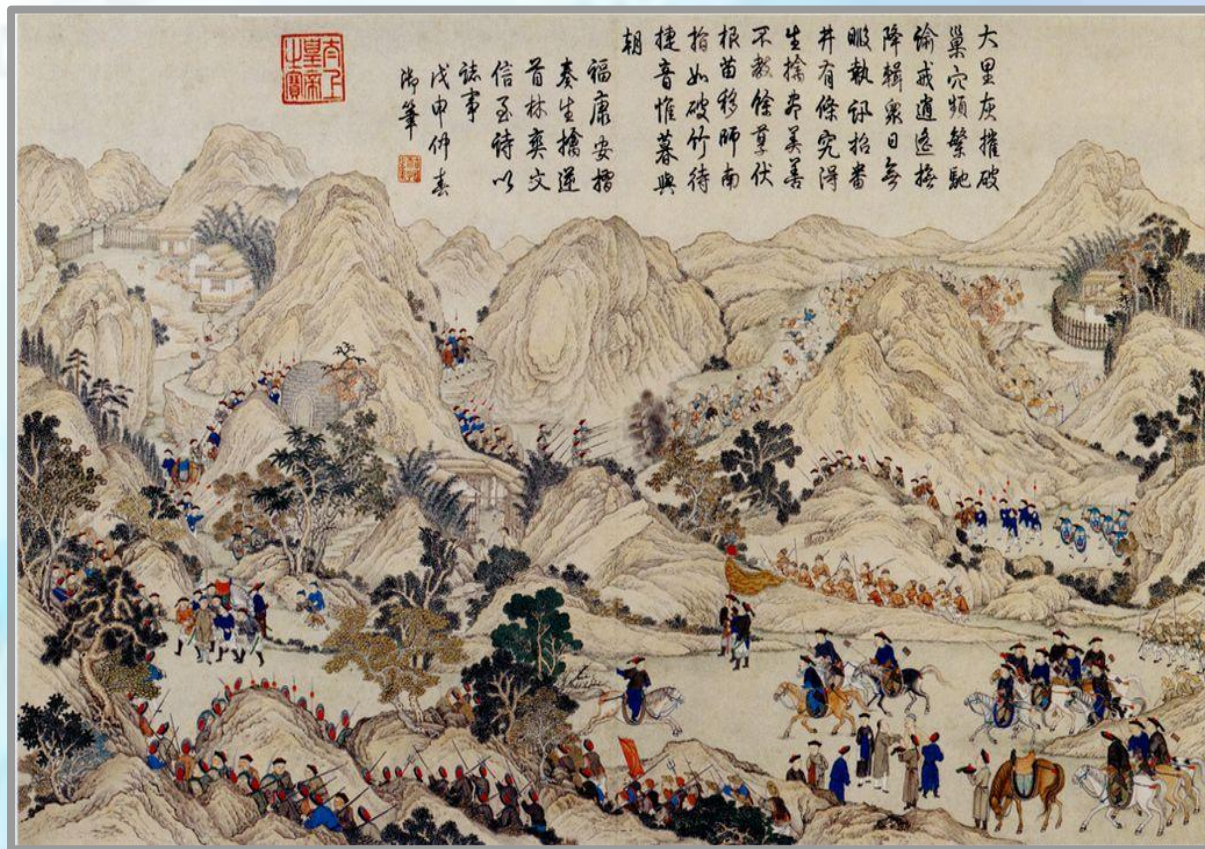 大里灰摧破
巢穴頻繁馳
諭戒逍遙撫
降輯衆日無
暇執訊招番
井有條究得
生擒美善
不教餘孽伏
根苗移師南
指如破竹待
捷音惟暮與
朝
福康安摺
奏生擒逆
首林爽文
信至詩以
誌事
戊申仲春
御筆
太上
皇帝
之寶